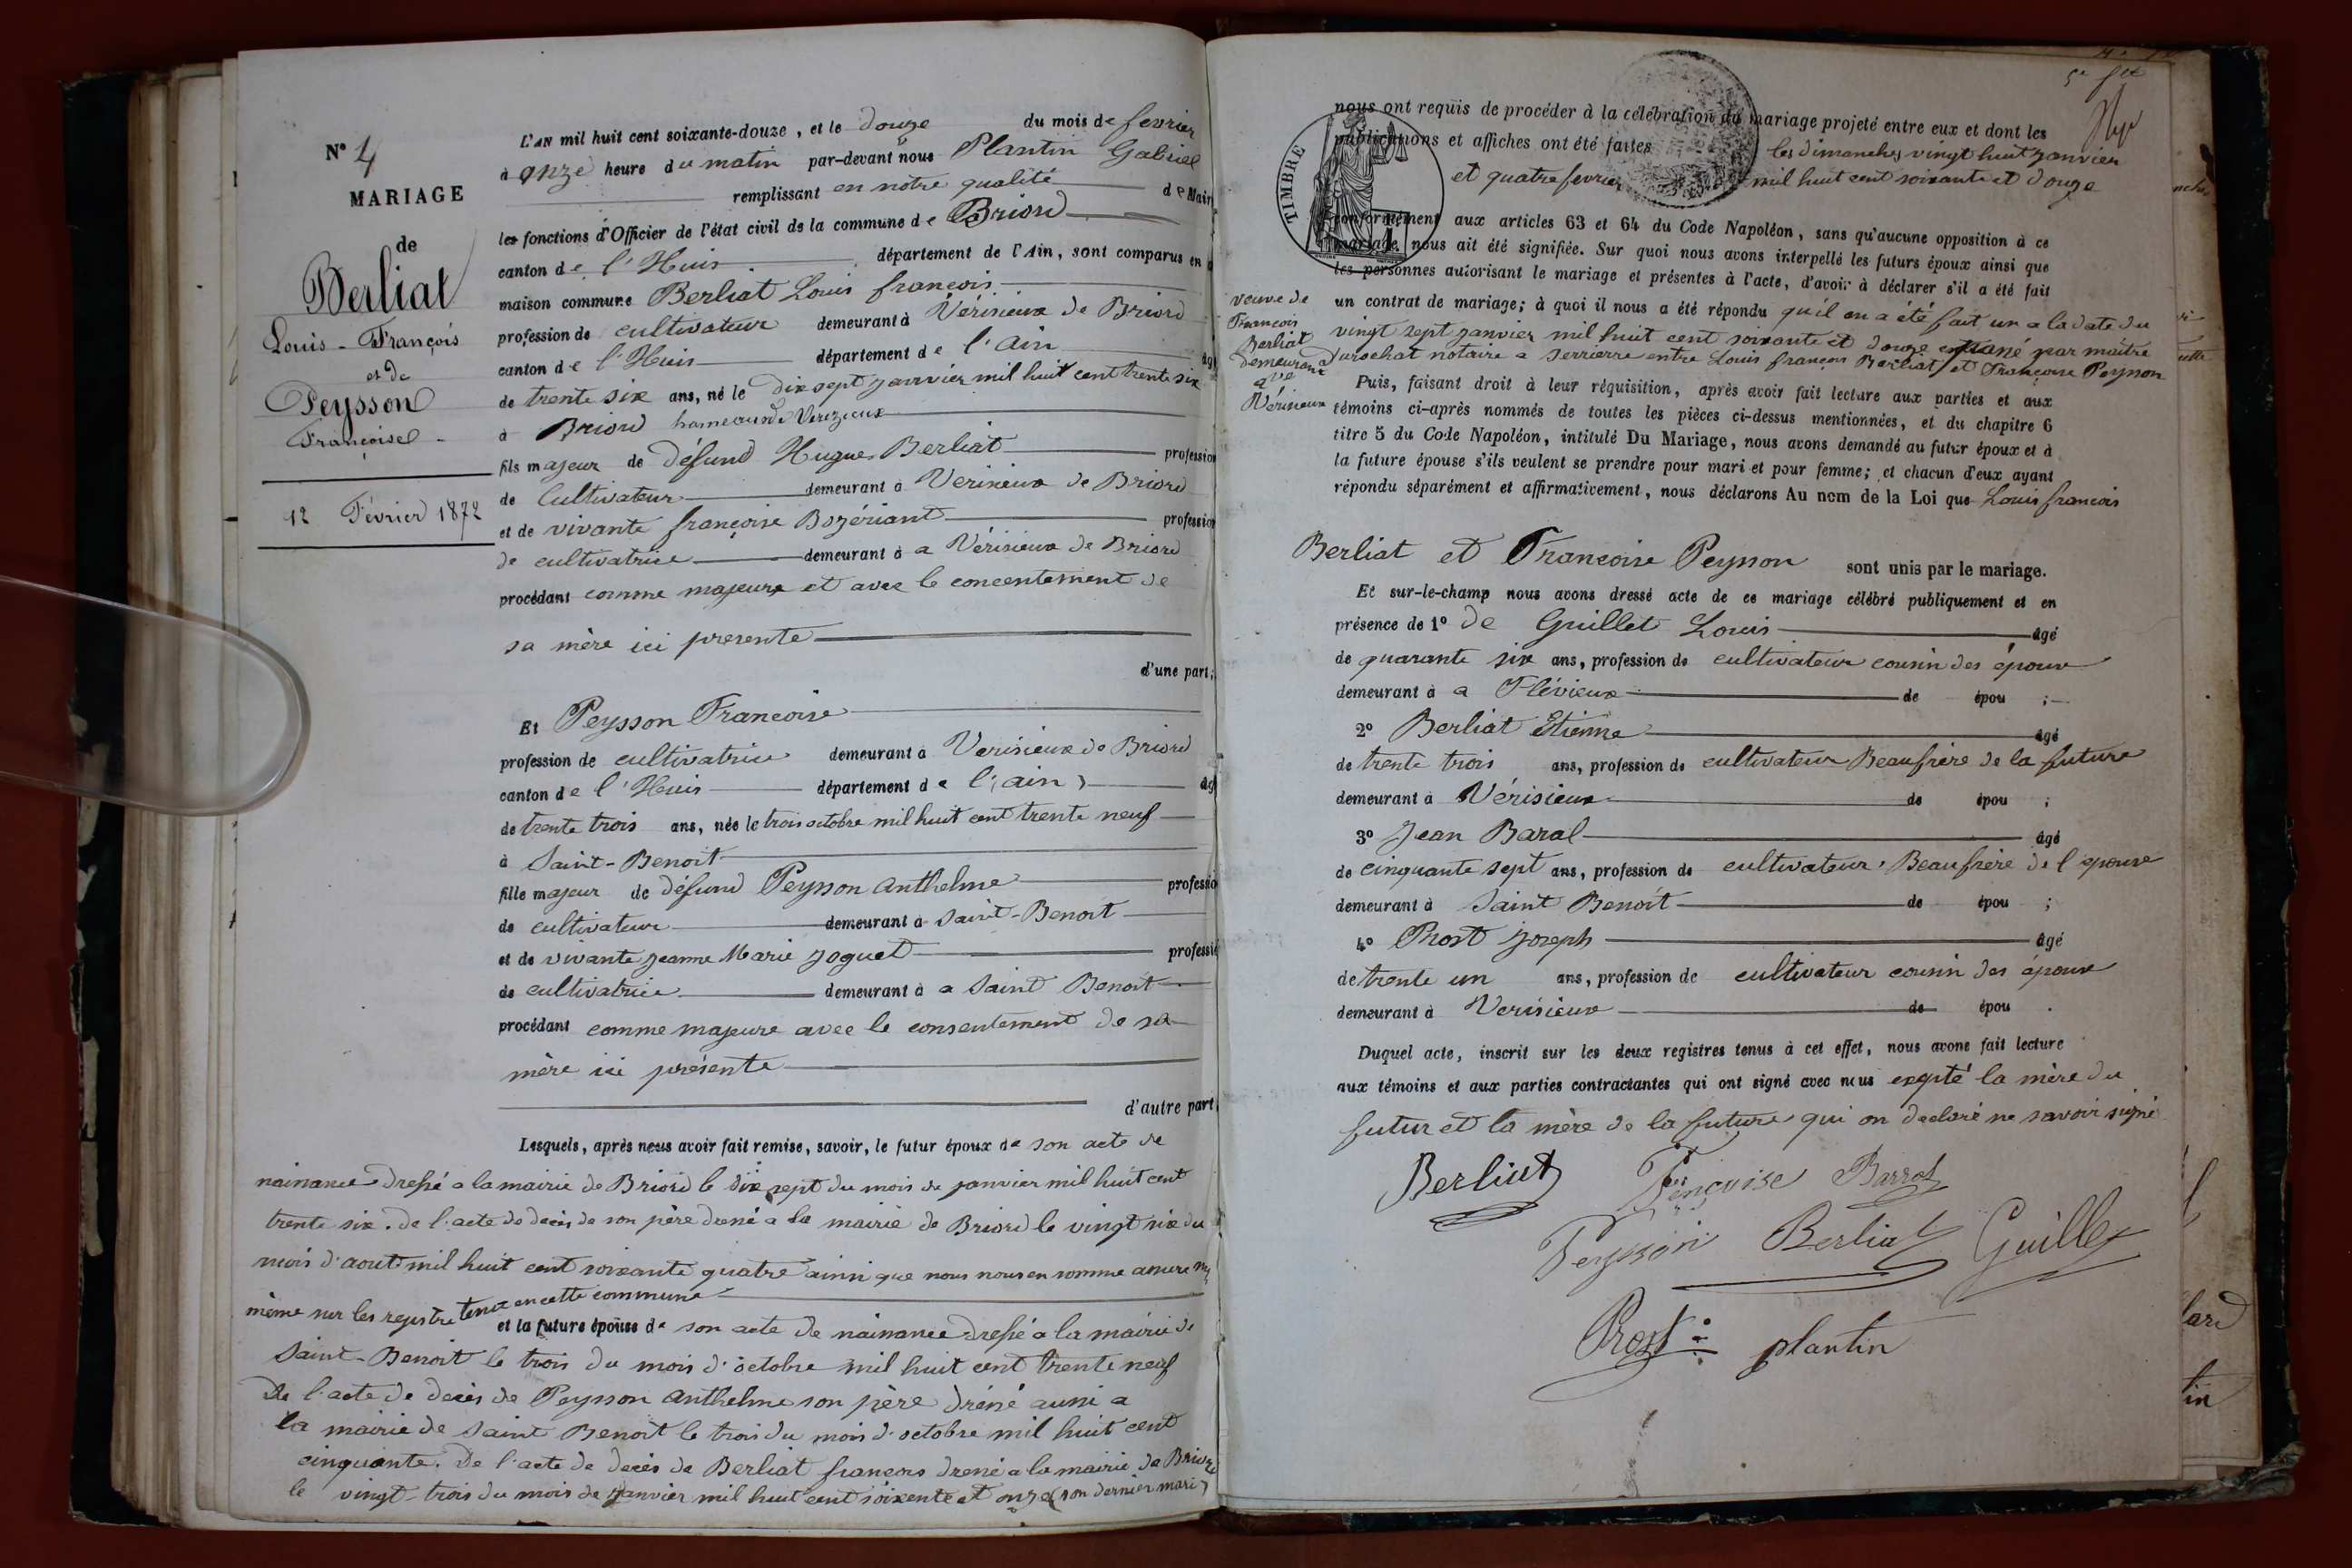 N° 4
MARIAGE
de
Berliat
Louis - François
et de
Peysson
Françoise -
12 Février 1872
L'AN mil huit cent soixante-douze, et le douze du mois de fevrier
à onze heure du matin par-devant nous Plantin Gabriel
remplissant en notre qualité de Mair
les fonctions d'Officier de l'état civil de la commune de Briord
canton de l'Huis département de l'Ain, sont comparus en
maison commune Berliat Louis françois
profession de cultivateur demeurant à Vérisieux de Briord
canton de l'Huis département de l'Ain âg
de trente six ans, né le dix sept janvier mil huit cent trente six
à Briord
fils majeur de défund Hugues Berliat profession
de Cultivateur demeurant à Verisieux de Briord
et de vivante françoise Bozériant profession
de cultivatrice demeurant à a Vérisieux de Briord
procédant comme majeure et avec le concentement de
sa mère ici presente
d'une part;
Et Peysson Francoise
profession de cultivatrice demeurant à Verisieux de Briord
canton de l'Huis département de l'ain âg
de trente trois ans, née le trois octobre mil huit cent trente neuf
à Saint-Benoit
fille majeur de défund Peysson Anthelme professio
de cultivateur demeurant à Saint-Benoit
et de vivante jeanne Marie joguet professi
de cultivatrice demeurant à a Saint Benoit
procédant comme majeure avec le consentement de sa
mère ici présente
d'autre part
Lesquels, après nous avoir fait remise, savoir, le futur époux de son acte de
naisance dressé a la mairie de Briord le dix sept du mois de janvier mil huit cent
trente six. de l'acte de decès de son père dressé a la mairie de Briord le vingt six du
mois d'aout mil huit cent soixante quatre ainsi que nous nous en somme assure
même sur les registre tenux en cette commune
et la future épouse de son acte de naisance dressé a la mairie de
Saint-Benoit le trois du mois d'octobre mil huit cent trente neuf
De l'acte de decès de Peysson Anthelme son père dréssé aussi a
la mairie de Saint Benoit le trois du mois d'octobre mil huit cent
cinquante. De l'acte de decès de Berliat francois dressé a la mairie de Briord
le vingt-trois du mois de janvier mil huit cent soixente et onze (son dernier mari)
nous ont requis de procéder à la célébration du mariage projeté entre eux et dont les
publications et affiches ont été faites les dimanches vingt huit janvier
et quatre fevrier mil huit cent soixante et douze
TIMBRE
conformément aux articles 63 et 64 du Code Napoléon, sans qu'aucune opposition à ce
mariage nous ait été signifiée. Sur quoi nous avons interpellé les futurs époux ainsi que
les personnes autorisant le mariage et présentes à l'acte, d'avoir à déclarer s'il a été fait
un contrat de mariage; à quoi il nous a été répondu qu'il en a été fait un a la date du
vingt sept janvier mil huit cent soixante et douze par maitre
Durochat notaire a Serrierre entre Louis françois Berliat et Françoise Peysson
veuve de
François
Berliat
demeurant
Vérisieux
Puis, faisant droit à leur réquisition, après avoir fait lecture aux parties et aux
témoins ci-après nommés de toutes les pièces ci-dessus mentionnées, et du chapitre 6
titre 5 du Code Napoléon, intitulé Du Mariage, nous avons demandé au futur époux et à
la future épouse s'ils veulent se prendre pour mari et pour femme; et chacun d'eux ayant
répondu séparément et affirmativement, nous déclarons Au nom de la Loi que Louis francois
Berliat et Francoise Peysson sont unis par le mariage.
Et sur-le-champ nous avons dressé acte de ce mariage célébré publiquement et en
présence de 1° de Guillet Louis âgé
de quarante six ans, profession de cultivateur cousin des époux
demeurant à a Flévieux de épou ;
2° Berliat Etienne âgé
de trente trois ans, profession de cultivateur Beaufrère de la future
demeurant à Vérisieux de épou ;
3° Jean Baral âgé
de cinquante sept ans, profession de cultivateur Beaufrère de l'epouse
demeurant à Saint Benoit de épou ;
4° Prost joseph âgé
de trente un ans, profession de cultivateur cousin des époux
demeurant à Verisieux de épou .
Duquel acte, inscrit sur les deux registres tenus à cet effet, nous avons fait lecture
aux témoins et aux parties contractantes qui ont signé avec nous la mère du
futur et la mère de la future qui on declaré ne savoir signé
Berliat Barral
Peysson Berliat Guillet
Prost plantin